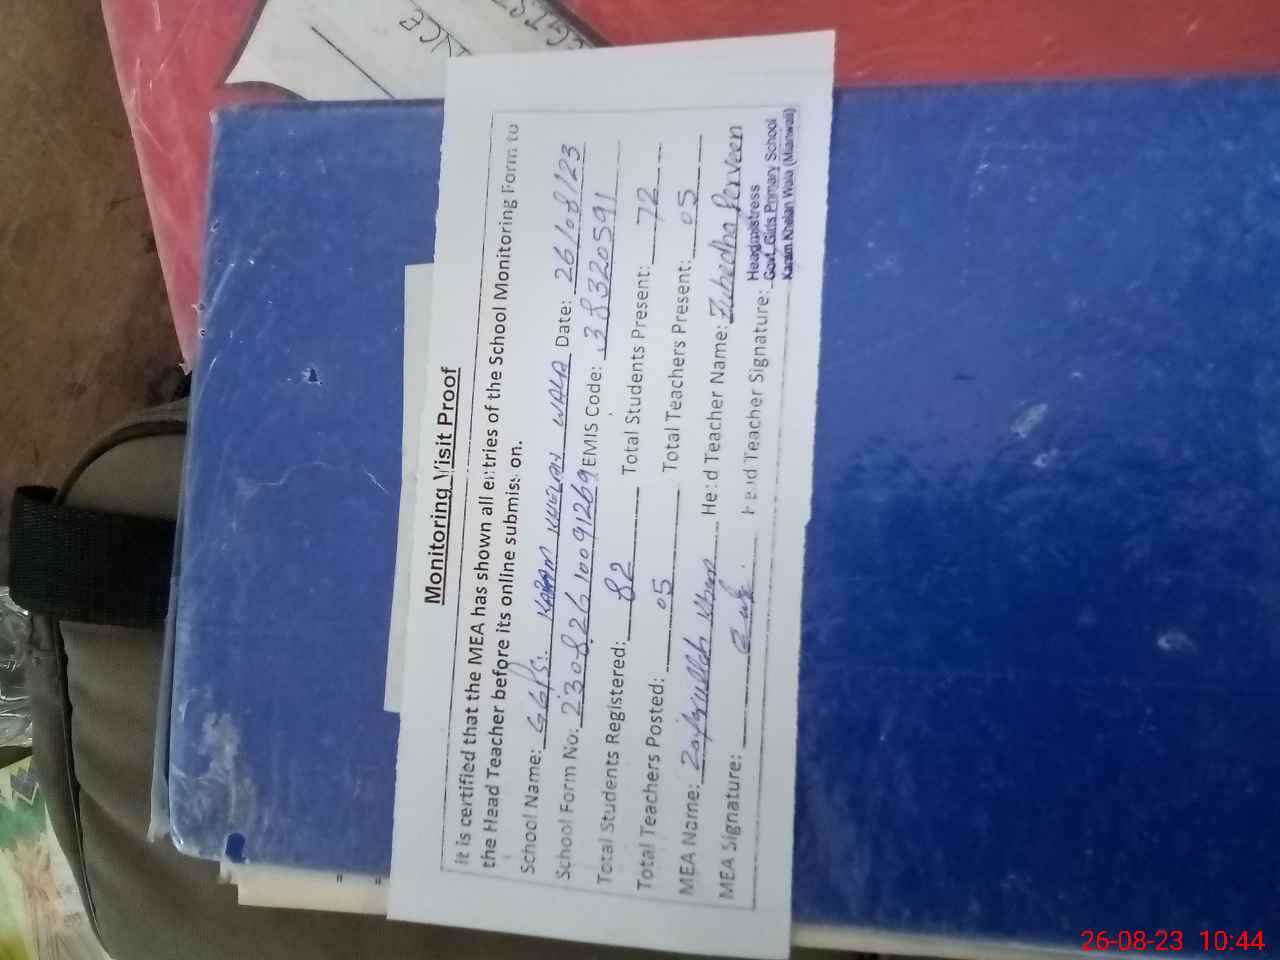 Monitoring Visit Proof
it is certified that the MEA has shown all entries of the School Monitoring Form to
the Head Teacher before its online submission.
School Name: GGPS. KARAM KHELAN WALA Date: 26/08/23
School Form No: 23082610091269 EMIS Code: 38320591
Total Students Registered: 82 Total Students Present: 72
Total Teachers Posted: 05 Total Teachers Present: 05
MEA Name: Zafrullah Khan Head Teacher Name: Zubedha Perveen
MEA Signature: Head Teacher Signature:
Headmistress
Govt. Girls Primary School
Karam Khelan Wala (Mianwali)
26-08-23 10:44